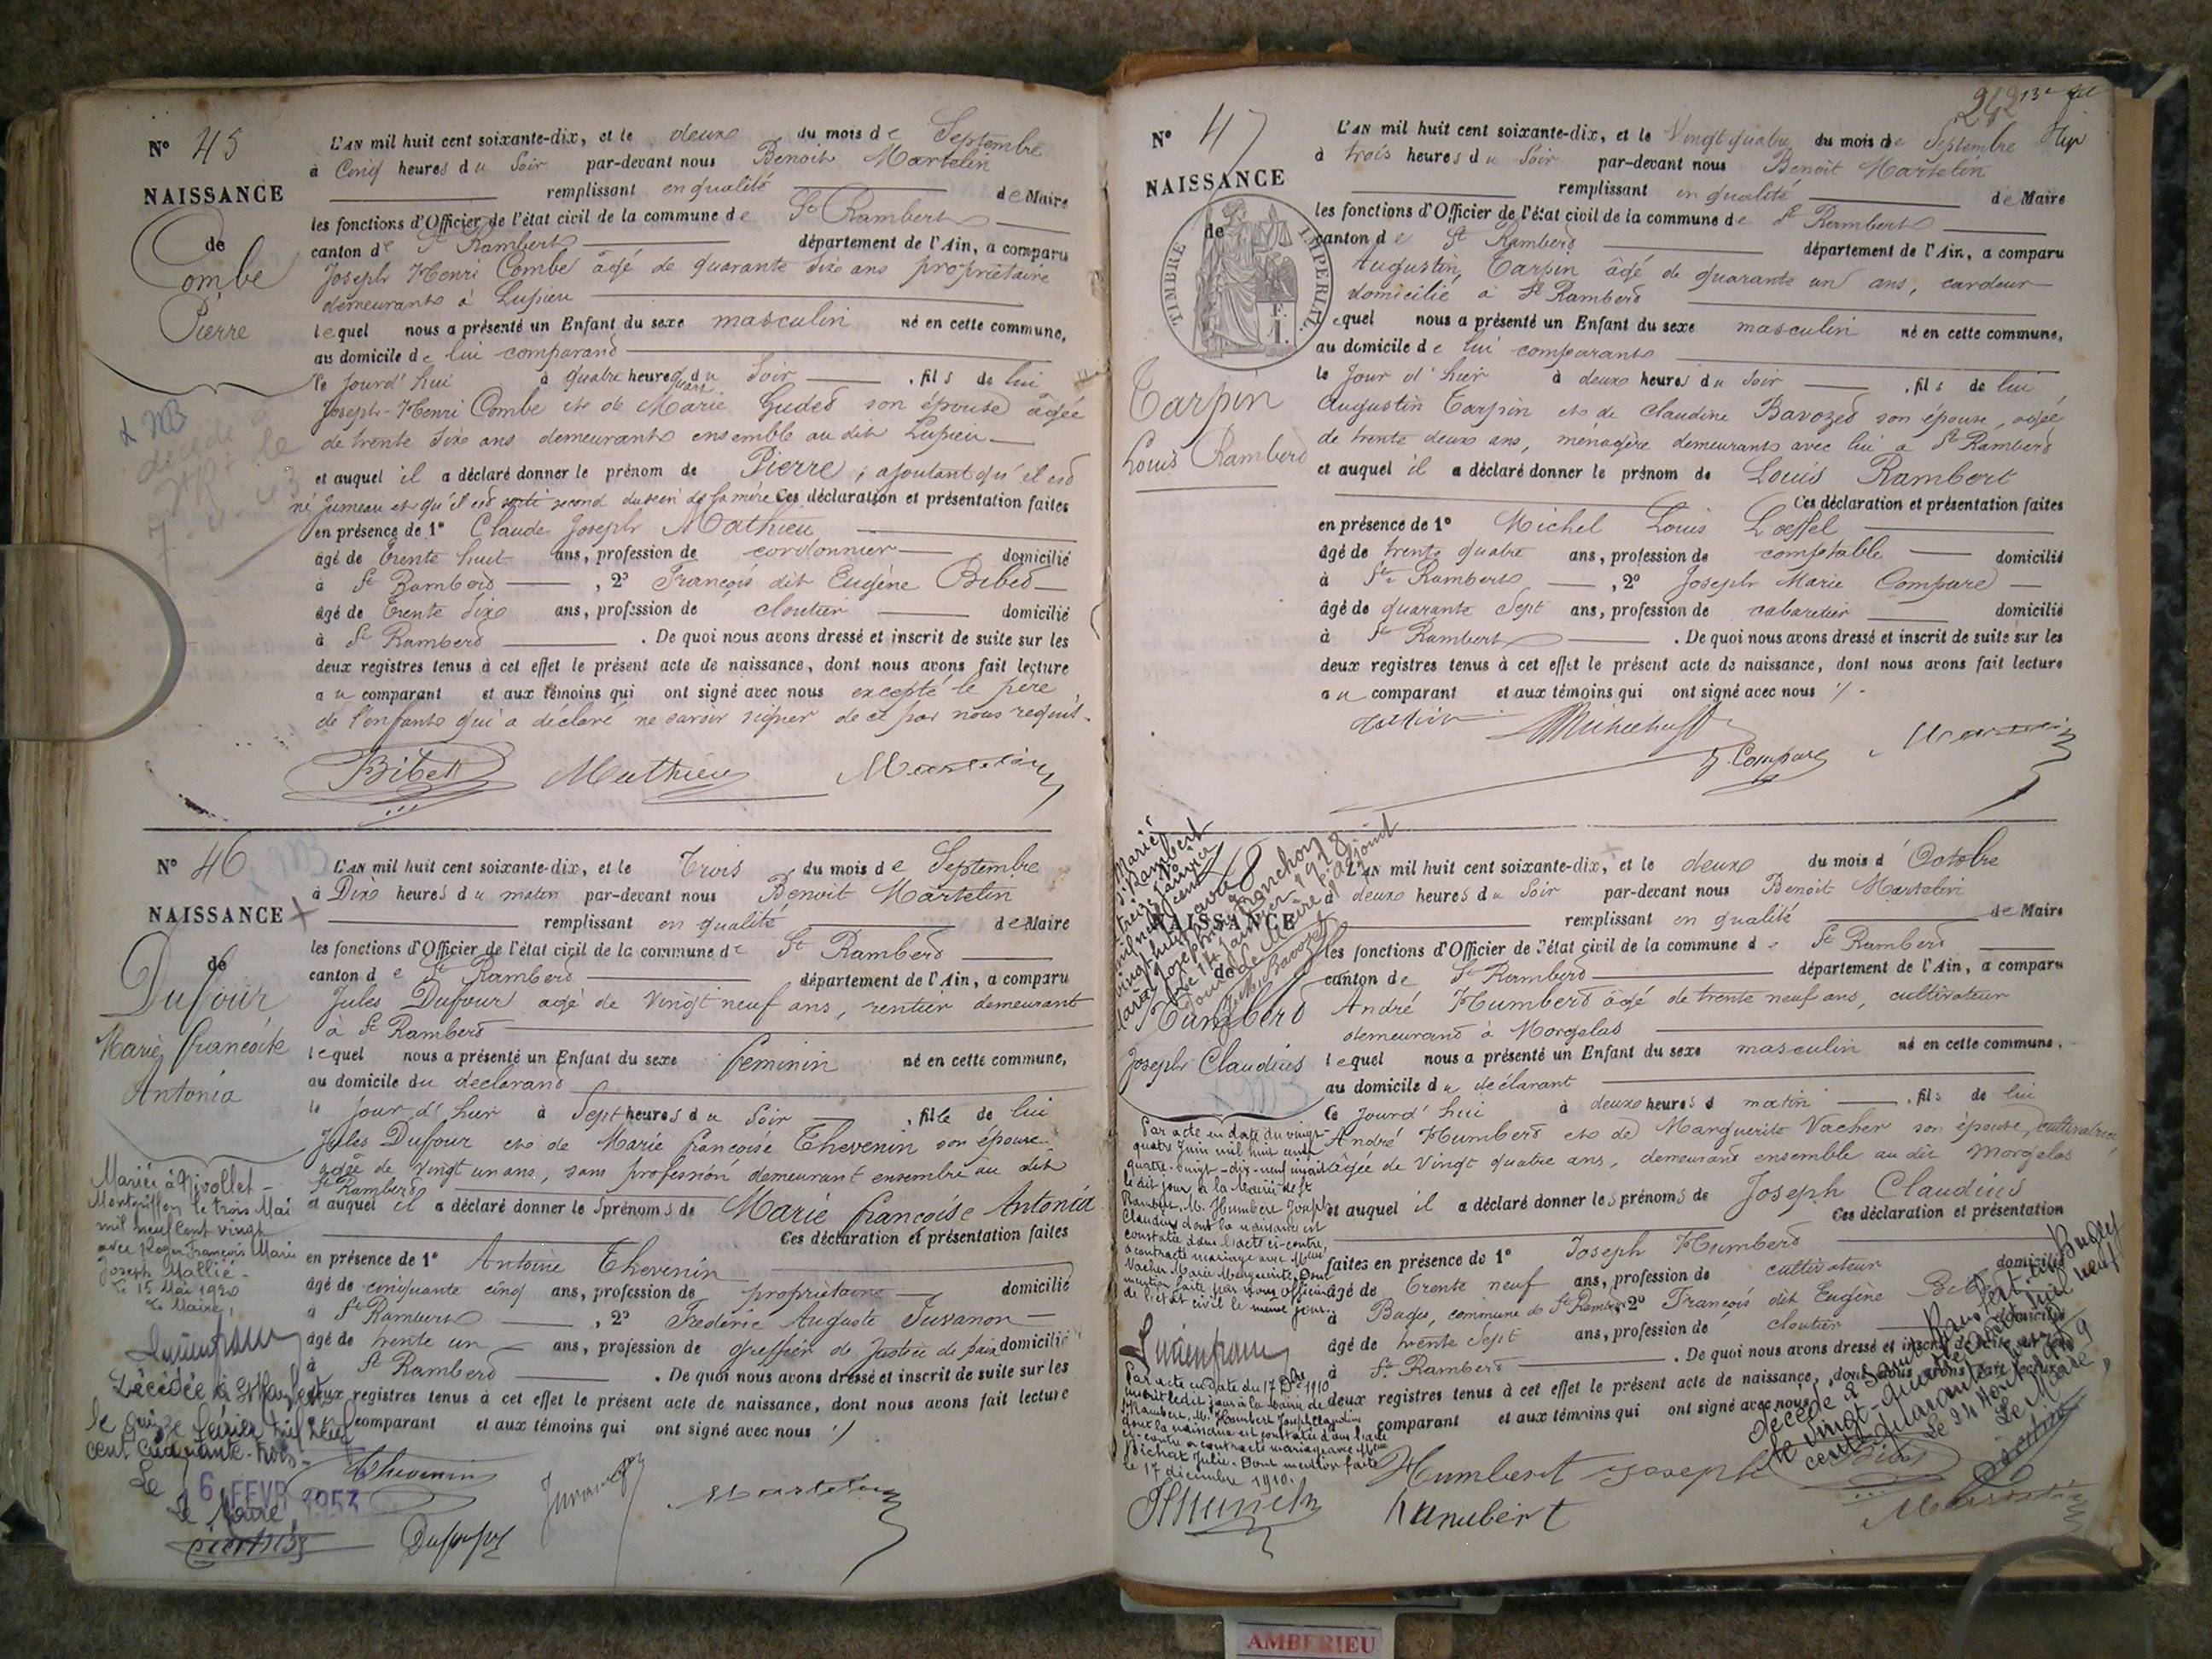 N° 45
NAISSANCE
de
Combe
Pierre
L'AN mil huit cent soixante-dix, et le deux du mois de Septembre
à Cinq heures du Soir par-devant nous Benoit Martelin
remplissant en qualité de Maire
les fonctions d'Officier de l'état civil de la commune de St Rambert
canton de St Rambert département de l'Ain, a comparu
Joseph Henri Combe âgé de quarante six ans propriétaire
demeurant à Lupieu
lequel nous a présenté un Enfant du sexe masculin né en cette commune,
au domicile de lui comparant
le jourd'hui à quatre heures du Soir, fils de lui
Joseph-Henri Combe et de Marie Gudet son épouse âgée
de trente six ans demeurant ensemble au dit Lupieu
et auquel il a déclaré donner le prénom de Pierre, ajoutant qu'il est
né jumeau et qu'il est sorti second du sein de sa mère Ces déclaration et présentation faites
en présence de 1° Claude Joseph Mathieu
âgé de trente huit ans, profession de cordonnier domicilié
à St Rambert, 2° François dit Eugène Bibet
âgé de trente six ans, profession de cloutier domicilié
à St Rambert. De quoi nous avons dressé et inscrit de suite sur les
deux registres tenus à cet effet le présent acte de naissance, dont nous avons fait lecture
au comparant et aux témoins qui ont signé avec nous excepté le père
de l'enfant qui a déclaré ne savoir signer de ce par nous requis.
Bibet Mathieu Martelin
N° 46
NAISSANCE
de
Dufour
Marie françoise
Antonia
L'AN mil huit cent soixante-dix, et le Trois du mois de Septembre
à Dix heures du matin par-devant nous Benoit Martelin
remplissant en qualité de Maire
les fonctions d'Officier de l'état civil de la commune de St Rambert
canton de St Rambert département de l'Ain, a comparu
Jules Dufour âgé de vingt neuf ans, rentier demeurant
à St Rambert
lequel nous a présenté un Enfant du sexe féminin né en cette commune,
au domicile du déclarant
le jour d'hier à Sept heures du Soir, fille de lui
Jules Dufour et de Marie françoise Thevenin son épouse
agée de vingt un ans, sans profession demeurant ensemble au dit
St Rambert
et auquel il a déclaré donner les prénoms de Marie françoise Antonia
Ces déclaration et présentation faites
en présence de 1° Antoine Thevenin
âgé de cinquante cinq ans, profession de propriétaire domicilié
à St Rambert, 2° Frédéric Auguste Juvanon
âgé de trente un ans, profession de greffier de Justice de paix domicilié
à St Rambert. De quoi nous avons dressé et inscrit de suite sur les
deux registres tenus à cet effet le présent acte de naissance, dont nous avons fait lecture
comparant et aux témoins qui ont signé avec nous
Thevenin
Dufour
Mariée à Nivollet-
Montgriffon le trois Mai
mil neuf cent vingt
avec Roger François Marie
Joseph Mallié -
Le 15 Mai 1920
Le Maire,
Décédée à St Rambert
le quinze février mil neuf
cent cinquante-trois -
Le 16 FEVR 1953
Le Maire
242
N° 47
NAISSANCE
de
TIMBRE IMPERIAL
Tarpin
Louis Rambert
L'AN mil huit cent soixante-dix, et le Vingt quatre du mois de Septembre
à trois heures du Soir par-devant nous Benoit Martelin
remplissant en qualité de Maire
les fonctions d'Officier de l'état civil de la commune de St Rambert
canton de St Rambert département de l'Ain, a comparu
Augustin Tarpin âgé de quarante un ans, cardeur
domicilié à St Rambert
lequel nous a présenté un Enfant du sexe masculin né en cette commune,
au domicile de lui comparant
le Jour d'hier à deux heures du Soir, fils de lui
Augustin Tarpin et de Claudine Bavozet son épouse, agée
de trente deux ans, ménagère demeurant avec lui à St Rambert
et auquel il a déclaré donner le prénom de Louis Rambert
Ces déclaration et présentation faites
en présence de 1° Michel Louis Loeffel
âgé de trente quatre ans, profession de comptable domicilié
à St Rambert, 2° Joseph Marie Compare
âgé de quarante Sept ans, profession de cabaretier domicilié
à St Rambert. De quoi nous avons dressé et inscrit de suite sur les
deux registres tenus à cet effet le présent acte de naissance, dont nous avons fait lecture
au comparant et aux témoins qui ont signé avec nous
J. Compare Martelin
48
NAISSANCE
de
Humbert
Joseph Claudius
L'AN mil huit cent soixante-dix, et le deux du mois d'Octobre
à deux heures du Soir par-devant nous Benoit Martelin
remplissant en qualité de Maire
les fonctions d'Officier de l'état civil de la commune de St Rambert
canton de St Rambert département de l'Ain, a comparu
André Humbert âgé de trente neuf ans, cultivateur
demeurant à Morgelas
lequel nous a présenté un Enfant du sexe masculin né en cette commune,
au domicile du déclarant
Ce jourd'hui à deux heures matin, fils de lui
André Humbert et de Marguerite Vacher son épouse, cultivatrice
âgée de Vingt quatre ans, demeurant ensemble au dit Morgelas
et auquel il a déclaré donner les prénoms de Joseph Claudius
Ces déclaration et présentation
faites en présence de 1° Joseph Humbert
âgé de trente neuf ans, profession de cultivateur domicilié
à Bages, commune de St Rambert 2° François dit Eugène Bibet
âgé de trente Sept ans, profession de cloutier domicilié
à St Rambert. De quoi nous avons dressé et inscrit de suite sur les
deux registres tenus à cet effet le présent acte de naissance, dont nous avons fait lecture
comparant et aux témoins qui ont signé avec nous
Humbert Joseph
Humbert
Martelin
Par acte en date du vingt-
quatre Juin mil huit cent
quatre-vingt-dix-neuf inscrit
le dit jour à la Mairie de St
Rambert, M. Humbert Joseph
Claudius dont la naissance est
constatée dans l'acte ci-contre,
a contracté mariage avec Melle
Vacher Marie Marguerite. Dont
mention faite par nous Officier
de l'état civil le même jour.
Par acte en date du 17 Dbre 1910
inscrit le dit jour à la Mairie de
St Rambert, M. Humbert Joseph Claudius
dont la naissance est constatée dans l'acte
ci-contre a contracté mariage avec Melle
Bichat Julie. Dont mention faite
le 17 décembre 1910.
décédé à Saint Rambert en Bugey
le vingt-quatre Août mil neuf
cent quarante neuf
Le 24 Août 1949
Le Maire,
AMBERIEU